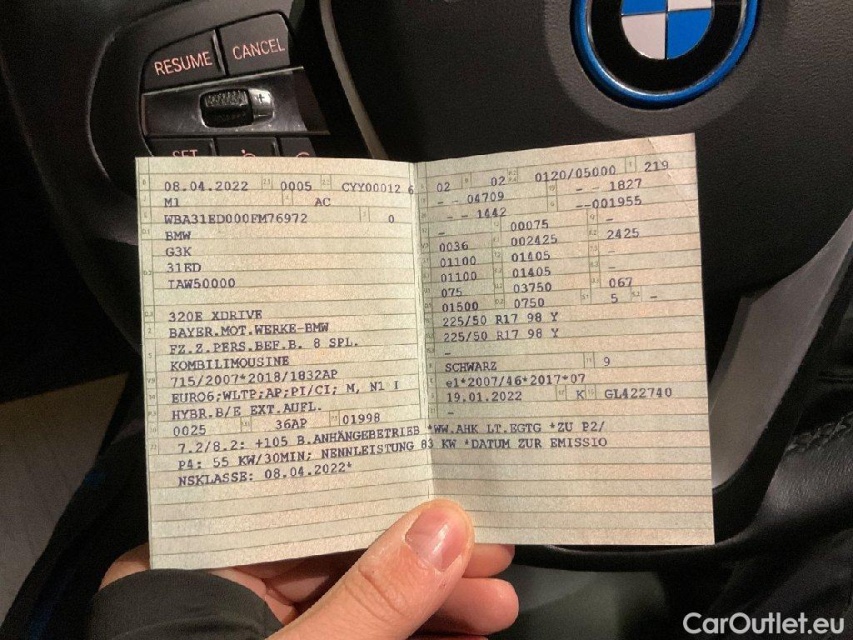 RESUME
CANCEL
SET
08.04.2022 0005 CYY00012 6
M1 AC
WBA31ED000FM76972 0
BMW
G3K
31ED
IAW50000
320E XDRIVE
BAYER.MOT.WERKE-BMW
FZ.Z.PERS.BEF.B. 8 SPL.
KOMBILIMOUSINE
715/2007*2018/1832AP
EURO6;WLTP;AP;PI/CI; M, N1 I
HYBR.B/E EXT.AUFL.
0025 36AP 01998
02 02 0120/05000 219
- - 04709 - - 1827
- - 1442 --001955
- 00075 -
0036 002425 2425
01100 01405 -
01100 01405 -
075 03750 067
01500 0750 5 -
225/50 R17 98 Y
225/50 R17 98 Y
-
SCHWARZ 9
e1*2007/46*2017*07
19.01.2022 K GL422740
-
7.2/8.2: +105 B.ANHÄNGEBETRIEB *WW.AHK LT.EGTG *ZU P2/
P4: 55 KW/30MIN; NENNLEISTUNG 83 KW *DATUM ZUR EMISSIO
NSKLASSE: 08.04.2022*
CarOutlet.eu